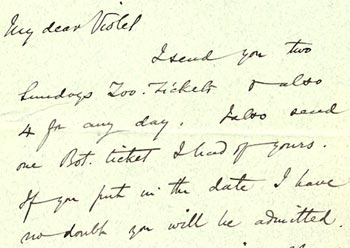 My dear Violet
I send you two
Sundays Zoo. Tickets & also
4 for any day. I also send
one Bot. ticket I had of yours.
If you put in the date I have
no doubt you will be admitted.